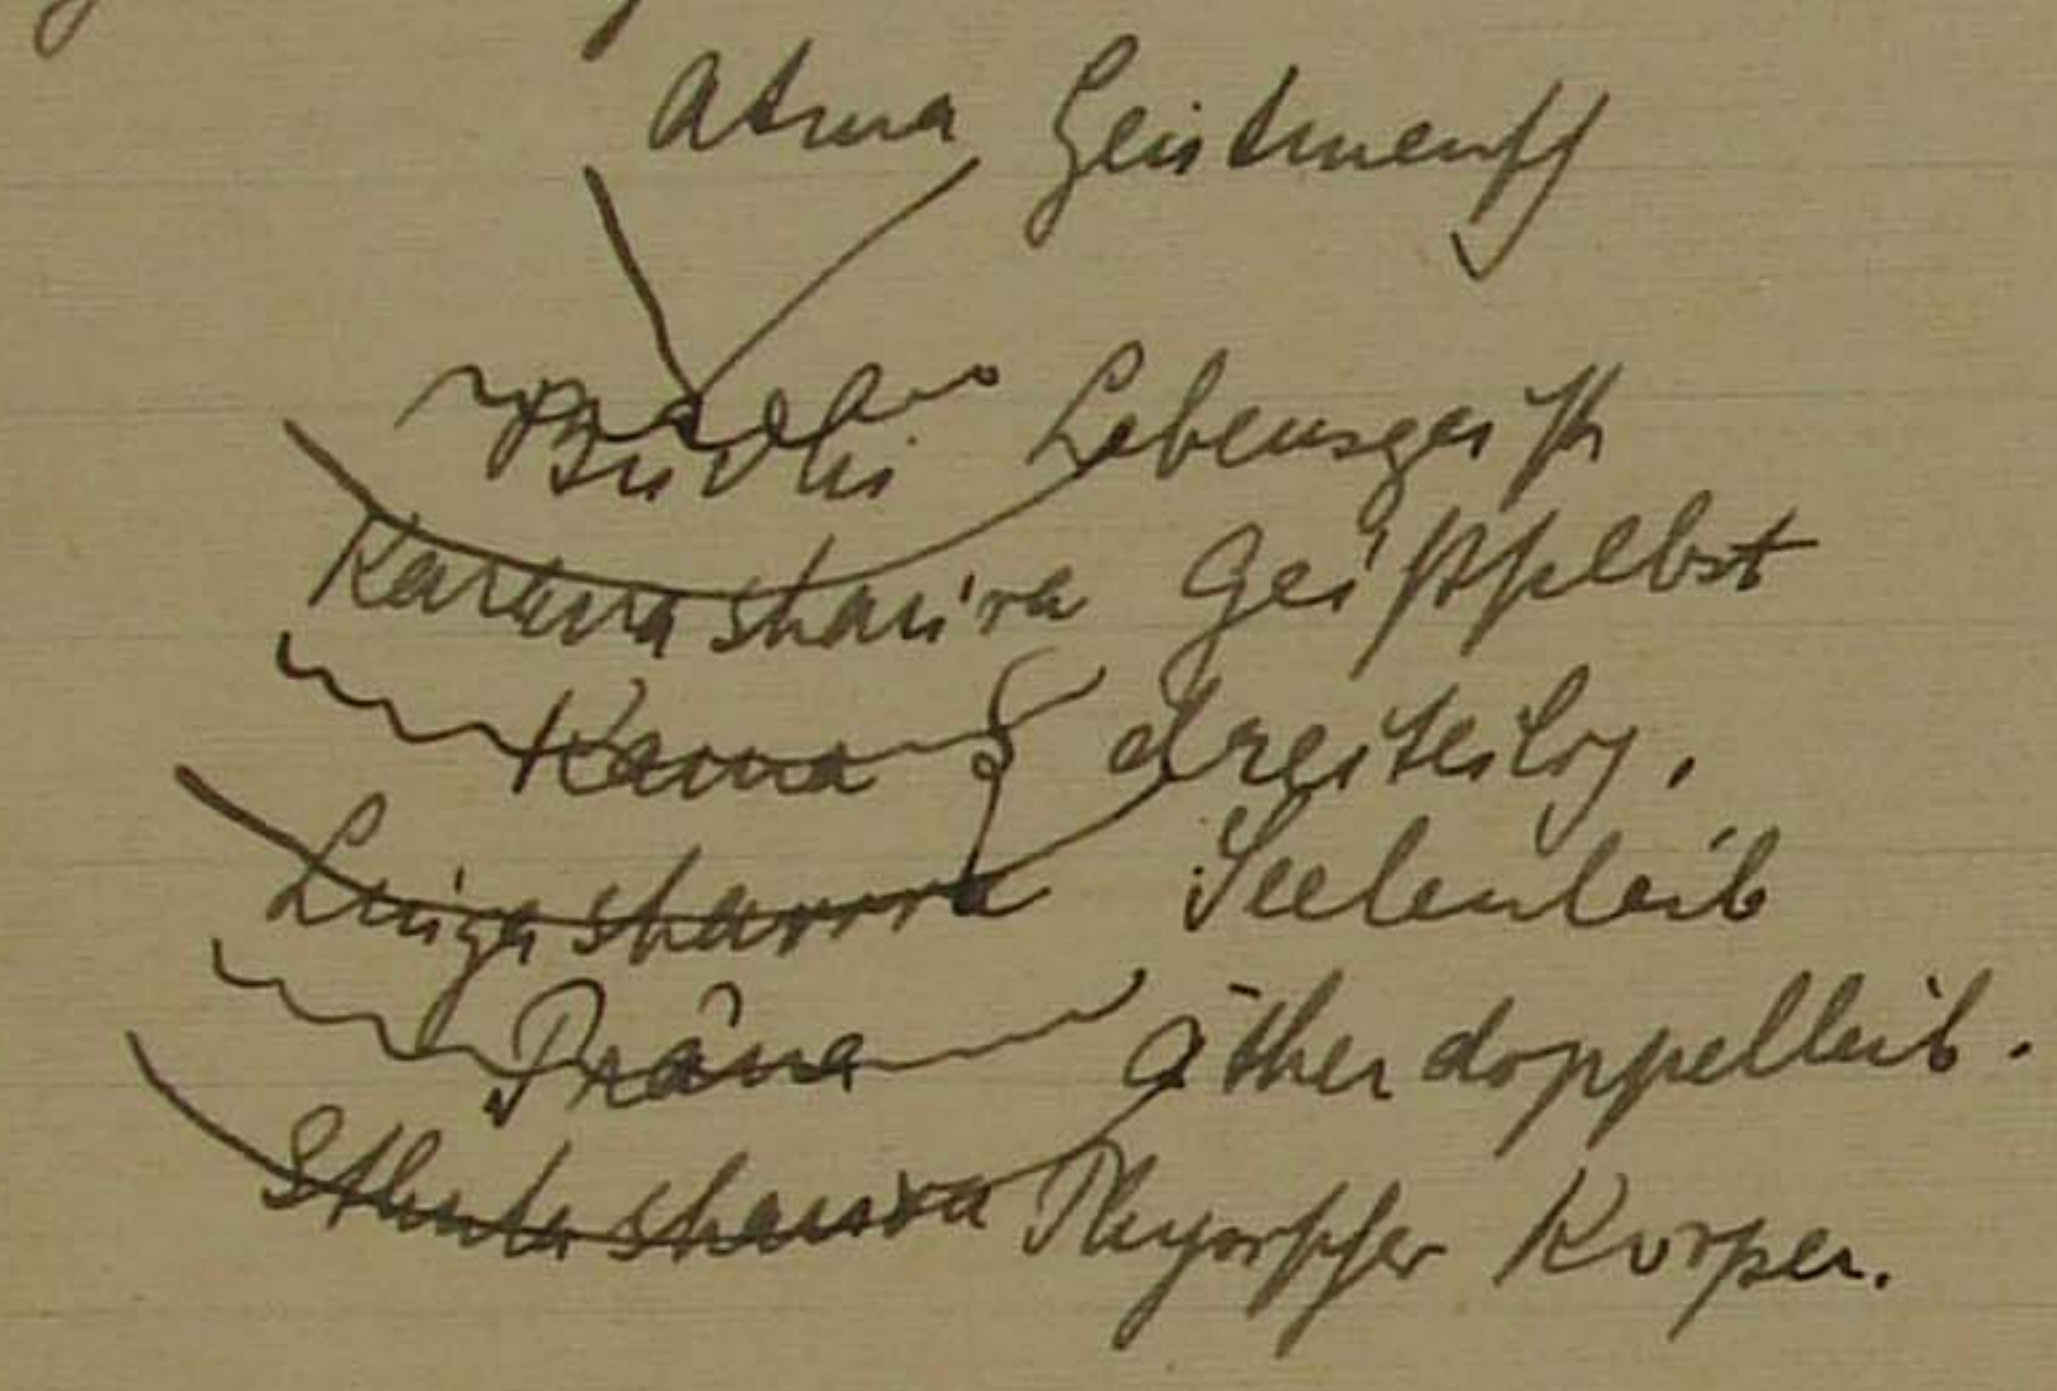 Atma Geistmensch
Budhi Lebensgeist
Karana sharira Geistselbst
Kama dreiteilig.
Linga sharira Seelenleib
Prâna Ätherdoppelleib.
Sthula sharira Physischer Körper.